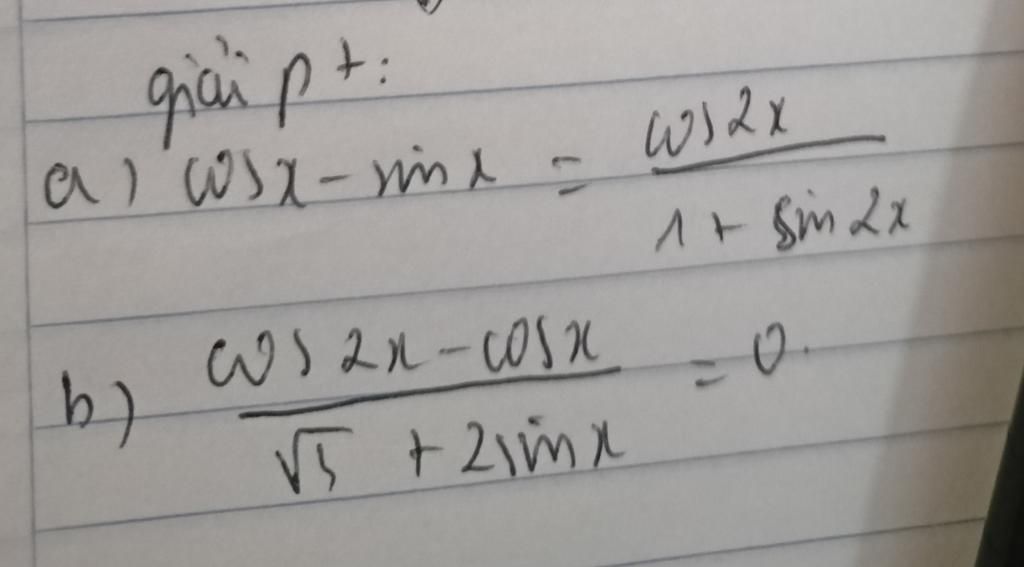 giải pt:
a) cosx - sinx = cos2x / 1 + sin2x
b) cos2x - cosx / √3 + 2sinx = 0.